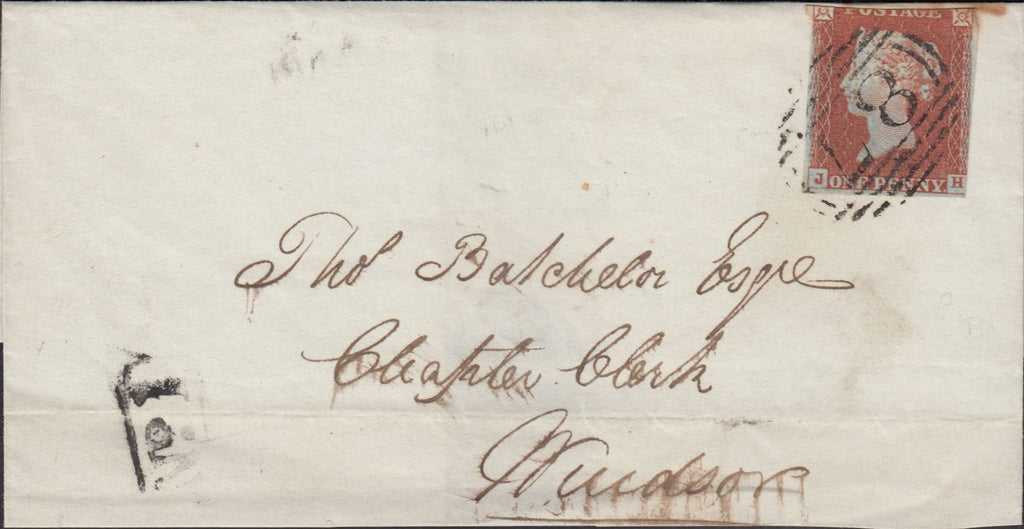 POSTAGE
8
J ONE PENNY H
Tho^s Batchelor Esqre
Chapter Clerk
Windsor